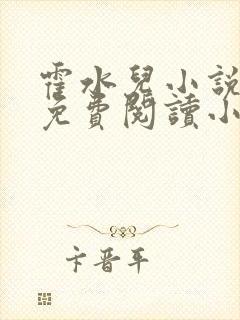 霍水兒小說
免費閱讀小
卞晋平